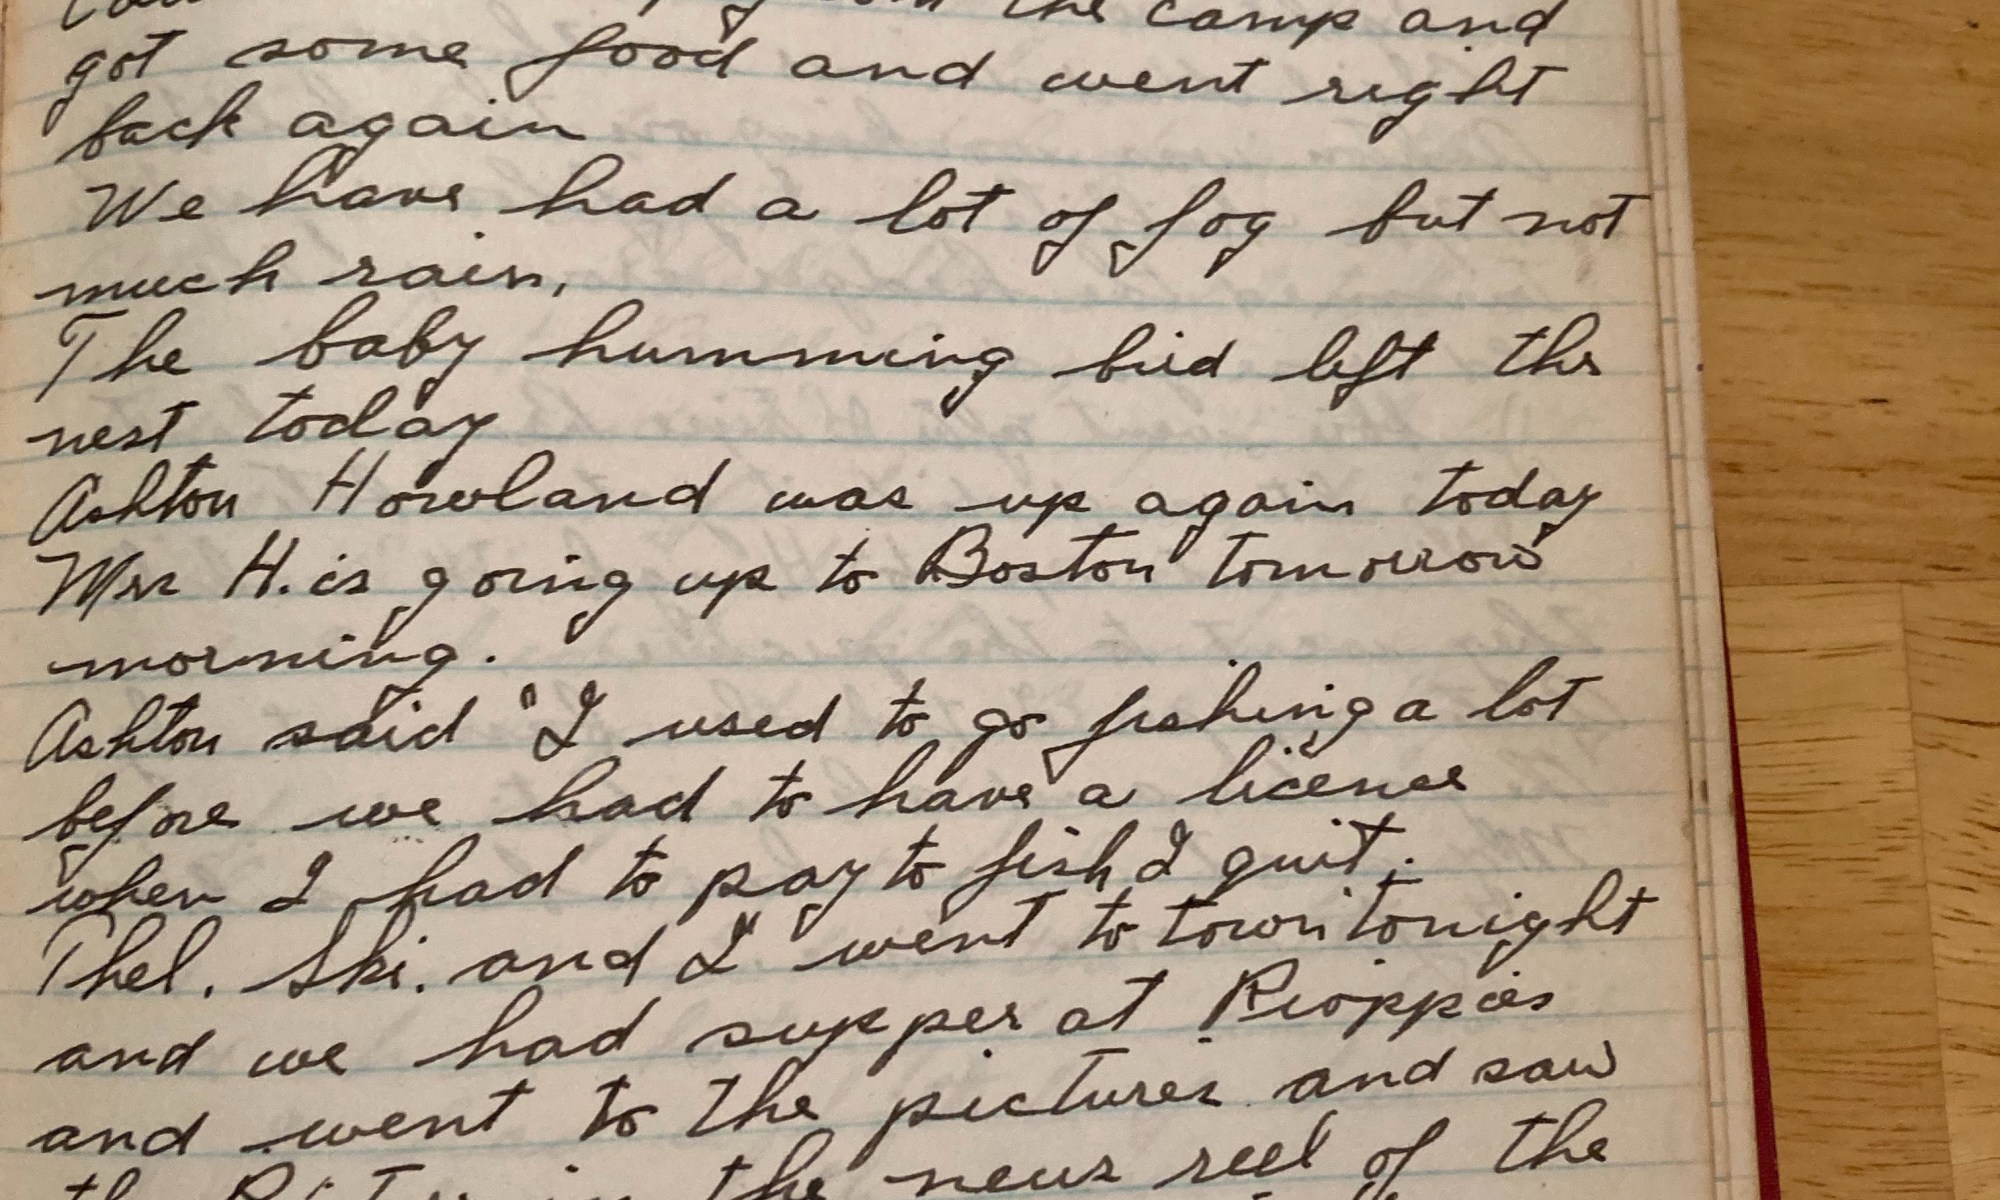 the camp and
got some food and went right
back again
We have had a lot of fog but not
much rain,
The baby humming bird left the
nest today
Ashton Howland was up again today
Mrs H. is going up to Boston tomorrow
morning.
Ashton said "I used to go fishing a lot
before we had to have a licence
when I had to pay to fish I quit."
Thel. Ski. and I went to town tonight
and we had supper at
and went to the pictures and saw
in the news reel of the